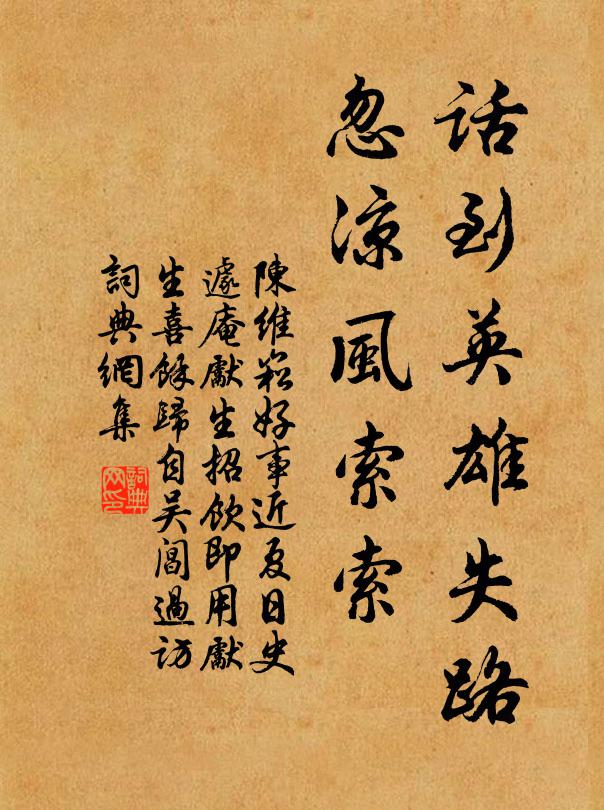 话到英雄失路
忽凉風索索
陳維崧好事近夏日史
遽庵獻生招飲即用獻
生喜餘歸自吴閶過访
詞典網集
詞典
网印